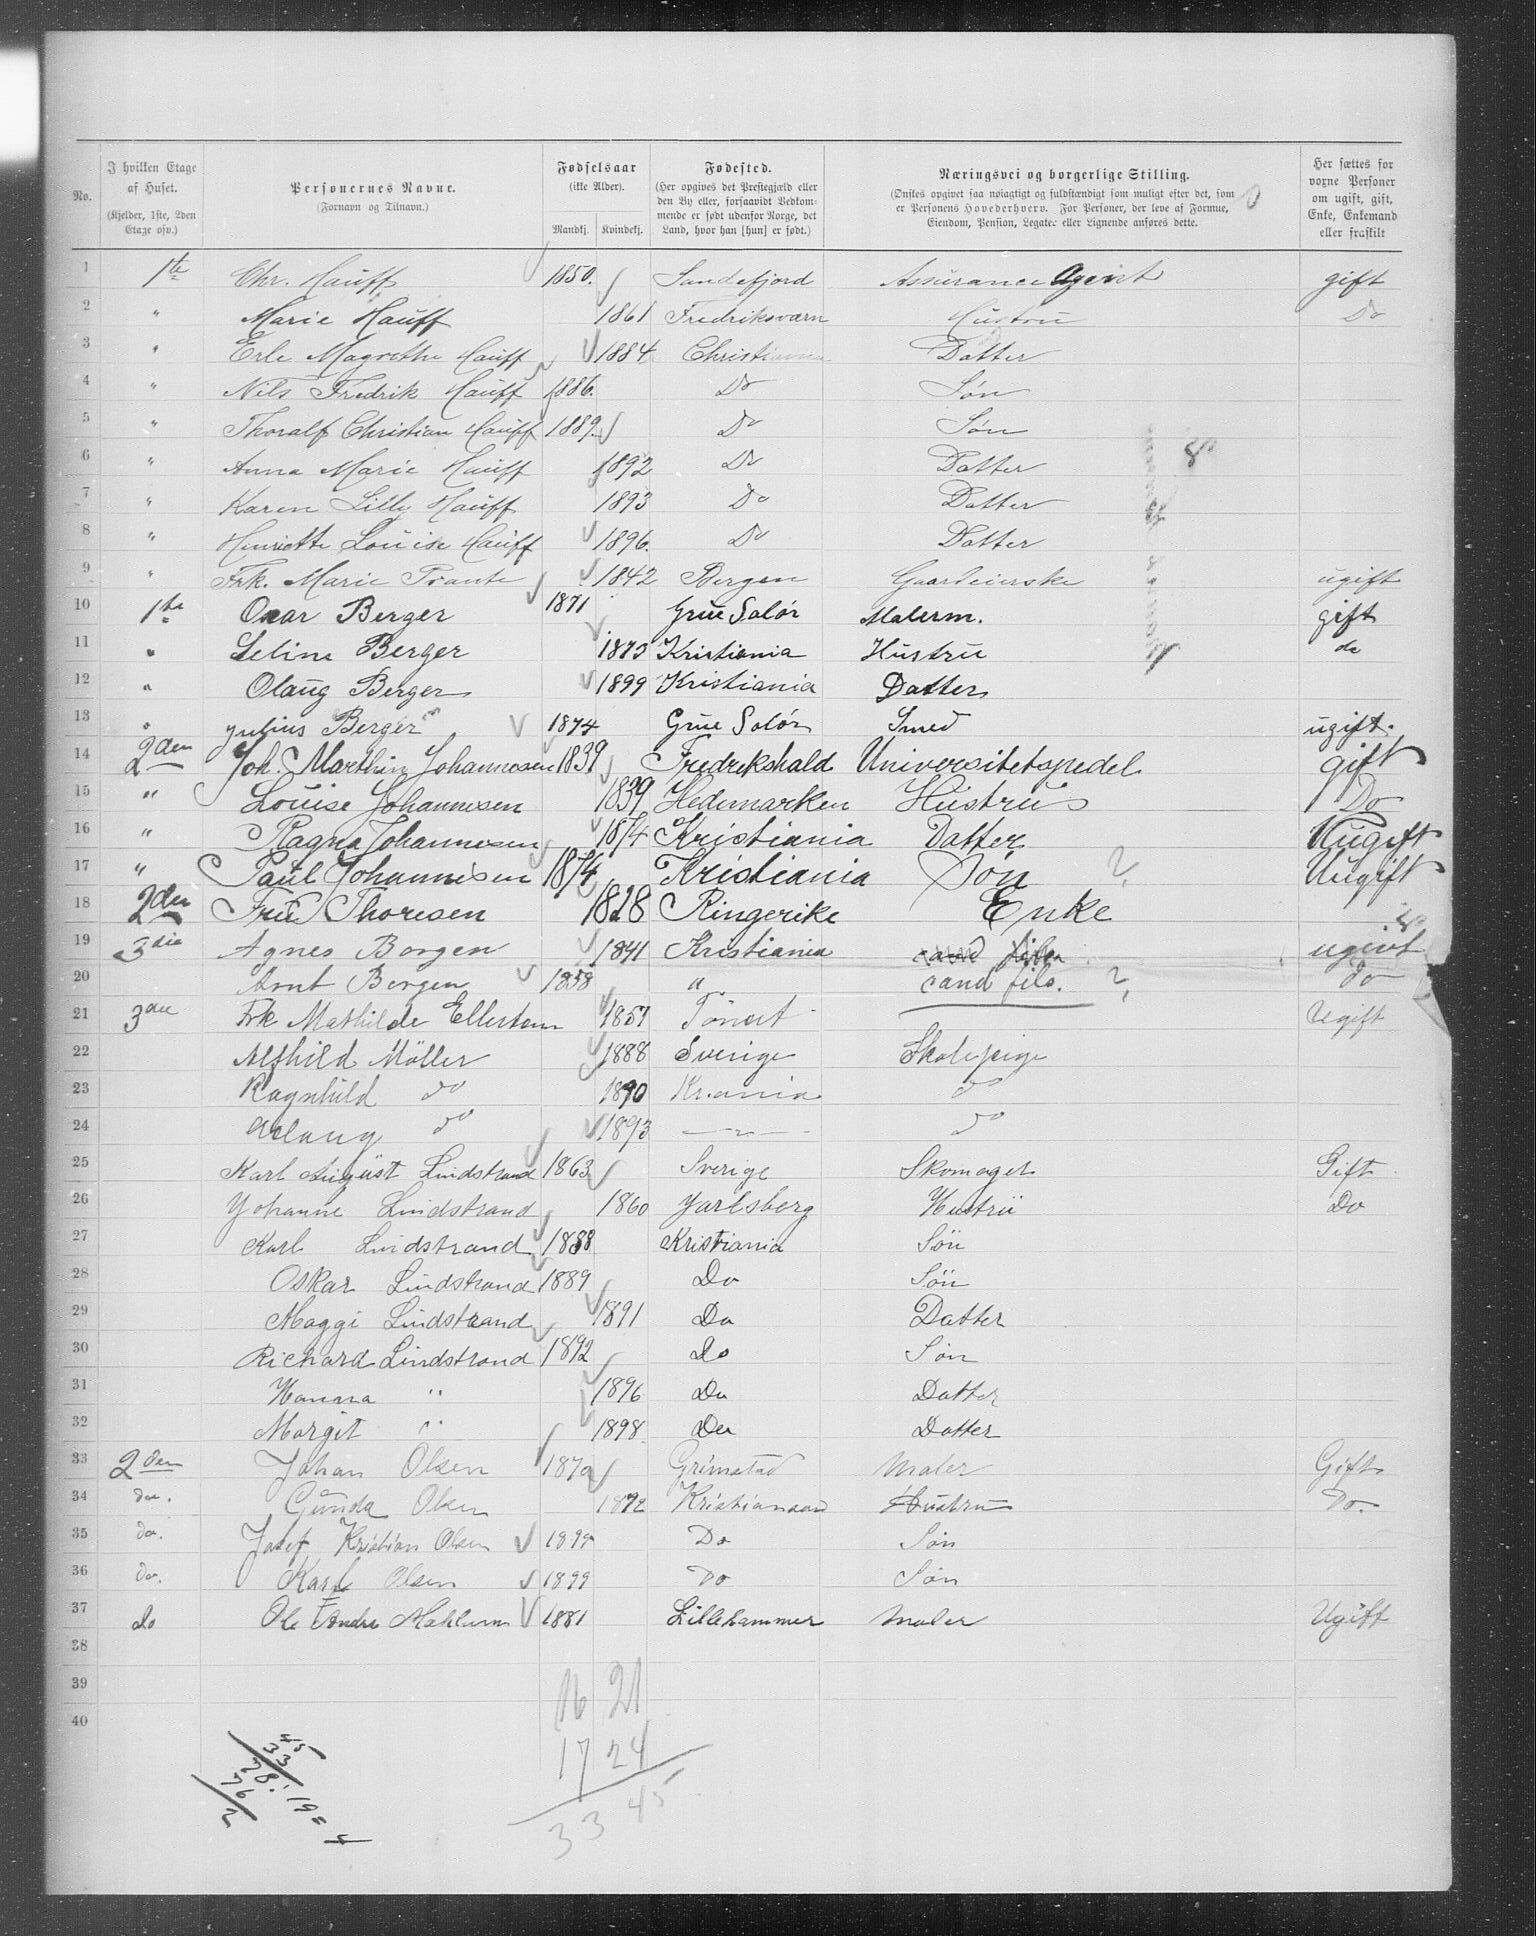 No. I hvilken Etage af Huset. (Kjelder, 1ste, 2den Etage osv.) Personernes Navne. (Fornavn og Tilnavn.) Fødselsaar (ikke Alder). Mandkj. Kvindekj. Fødested. (Her opgives det Prestegjæld eller den By eller, forsaavidt Vedkommende er født udenfor Norge, det Land, hvor han [hun] er født.) Næringsvei og borgerlige Stilling. (Ønskes opgivet saa nøiagtigt og fuldstændigt som muligt efter det, som er Personens Hovederhverv. For Personer, der leve af Formue, Eiendom, Pension, Legater eller Lignende anføres dette. Her sættes for voxne Personer om ugift, gift, Enke, Enkemand eller fraskilt
1 1te Chr. Hauff 1850. Sandefjord Assurance Agent gift
2 " Marie Hauff 1861 Fredriksværn Hustru Do
3 " Erle Magrethe Hauff 1884 Christiania Datter
4 " Nils Fredrik Hauff 1886. Do Søn
5 " Thoralf Christian Hauff 1889. Do Søn
6 " Anna Marie Hauff 1892 Do Datter 8
7 " Karen Lilly Hauff 1893 Do Datter
8 " Henriette Louise Hauff 1896. Do Datter
9 " Frk. Marie Trante 1842 Bergen ugift
10 1te Oscar Berger 1871 Grue Solør Malerm. gift
11 " Seline Berger 1873 Kristiania Hustru do
12 " Olaug Berger 1899 Kristiania Datter
13 " Julius Berger 1874 Grue Solør Smed ugift.
14 2den Joh. Marthin Johannesen 1839 Fredrikshald Universitetspedel gift
15 " Louise Johannesen 1839 Hedemarken Hustru Do
16 " Ragna Johannesen 1874 Kristiania Datter Uugift
17 " Paul Johannesen 1874 Kristiania Søn ? Uugift
18 2den Frue Thoresen 1828 Ringerike Enke
19 3die Agnes Borgen 1841 Kristiania ugivt
20 Arnt Borgen 1858 " cand filo. ? do
21 3die Frk Mathilde Ellertsen 1851 Ugift
22 Alfhild Möller 1888 Sverige Skolepige
23 Ragnhild do 1890 Kr.ania do
24 Aslaug do 1893 — " — do
25 Karl August Lindstrand 1863 Sverige Skomager Gift
26 Johanne Lindstrand 1860 Jarlsberg Hustru Do
27 Karl Lindstrand 1888 Kristiania Søn
28 Oskar Lindstrand 1889 Do Søn
29 Maggi Lindstrand 1891 Do Datter
30 Richard Lindstrand 1892 do Søn
31 Hanna " 1896 Do Datter
32 Margit " 1898 Do Datter
33 2den Johan Olsen 1870 Grimstad Maler Gift
34 do. Gunda Olsen 1872 Kristiansand Hustru Do.
35 do. Josef Kristian Olsen 1899 Do Søn
36 do. Karl Olsen 1899 Do Søn
37 do Ole Andre Mæhlum 1881 Lillehammer Maler Ugift
38
39 16 21
40 17 24
33 45
45
33
78 : 19 = 4
76
2